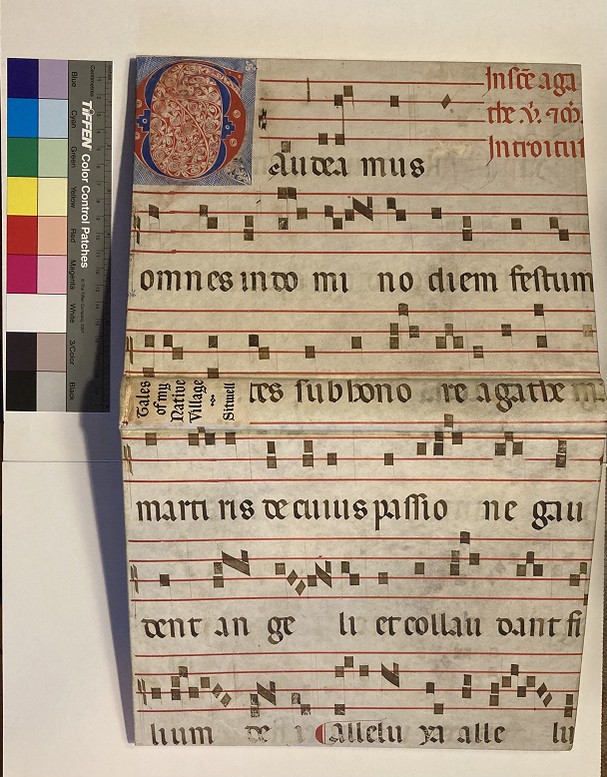 In scē aga
the v̉. ⁊ m̉.
Introitus
Gaudea mus
omnes in do mi no diem festum
tes sub hono re agathe
marti ris de cuius passio ne gau
dent an ge li et collau dant fi
lium de i Allelu ya alle lu
Tales
of my
Native
Village
Sitwell
TIFFEN Color Control Patches
Centimetres
Blue
Cyan
Green
Yellow
Red
Magenta
White
3/Color
Black